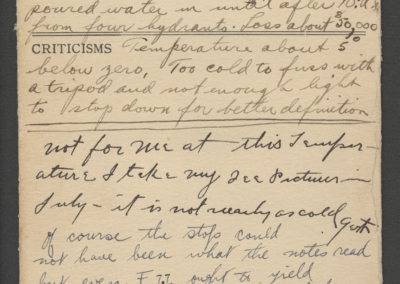 poured water in until after 10:
from four hydrants. Loss about $50,000
CRITICISMS Temperature about 5
below zero, Too cold to fuss with
a tripod and not enough light
to stop down for better definition
not for me at this Temper-
ature I take my Ice Pictures in
July - it is not nearly as cold
of course the stop could
not have been what the notes read
but even F 77 ought to yield